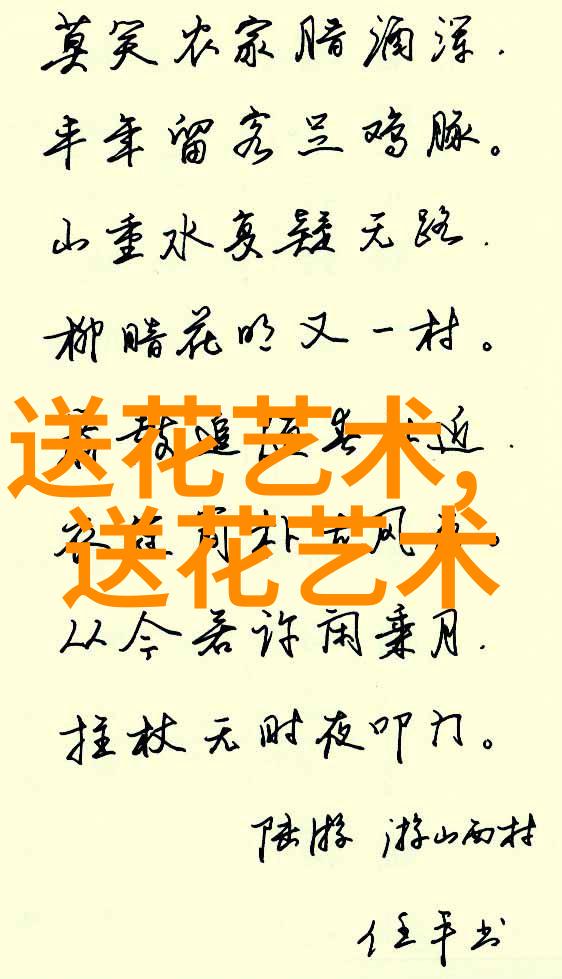 莫笑农家腊酒浑.
丰年留客足鸡豚。
山重水复疑无路.
柳暗花明又一村。
鼓追随春近.
送花艺术,
衣冠朴古风。
送花艺术
从今若许闲乘月.
拄杖无时夜叩门。
陆游 游山西村
任平书